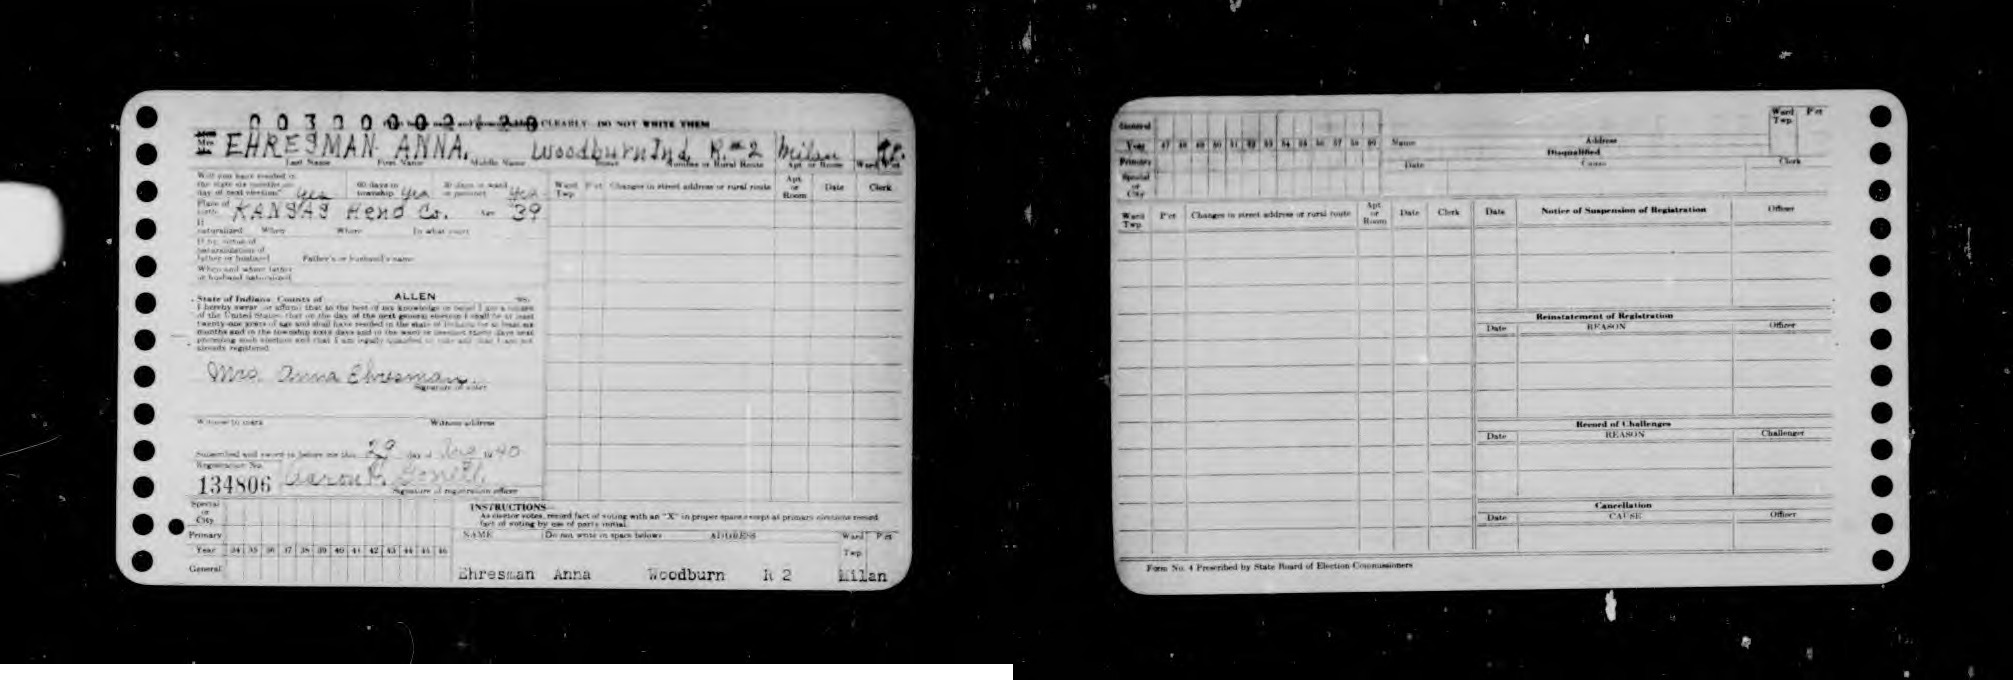 CLEARLY DO NOT WRITE THEM
Mrs EHRESMAN ANNA. Woodburn Ind R.#2 Milan
Last Name First Name Middle Name Street Number or Rural Route Apt or Room Ward Pct
Will you have resided in
the state six months on
day of next election? Yes 60 days in township Yes 30 days in ward or precinct Yes
Place of birth KANSAS Co. Age 39
If naturalized When Where In what court
If by virtue of
naturalization of
father or husband Father's or husband's name
When and where father
or husband naturalized
State of Indiana, County of ALLEN ss.
I hereby swear or affirm that to the best of my knowledge or belief I am a citizen
of the United States; that on the day of the next general election I shall be at least
twenty-one years of age and shall have resided in the state of Indiana for at least six
months and in the township sixty days and in the ward or precinct thirty days next
preceding such election and that I am legally qualified to vote and that I am not
already registered.
Mrs. Anna Ehresman.
Signature of voter
Witness to mark Witness address
Subscribed and sworn to before me this 29 day of 1940
Registration No.
134806 Aaron
Signature of registration officer
Ward Twp. P'ct Changes in street address or rural route Apt. or Room Date Clerk
Special or City
Primary
Year 34 35 36 37 38 39 40 41 42 43 44 45 46
General
INSTRUCTIONS
As elector votes, record fact of voting with an "X" in proper space except at primary elections record
fact of voting by use of party initial.
NAME (Do not write in space below) ADDRESS Ward Twp. P'ct
Ehresman Anna Woodburn R 2 Milan
General
Year 47 48 49 50 51 52 53 54 55 56 57 58 59
Primary
Special or City
Name Address Ward Twp. P'ct
Disqualified
Date Cause Clerk
Ward Twp. P'ct Changes in street address or rural route Apt. or Room Date Clerk
Date Notice of Suspension of Registration Officer
Reinstatement of Registration
Date REASON Officer
Record of Challenges
Date REASON Challenger
Cancellation
Date CAUSE Officer
Form No. 4 Prescribed by State Board of Election Commissioners